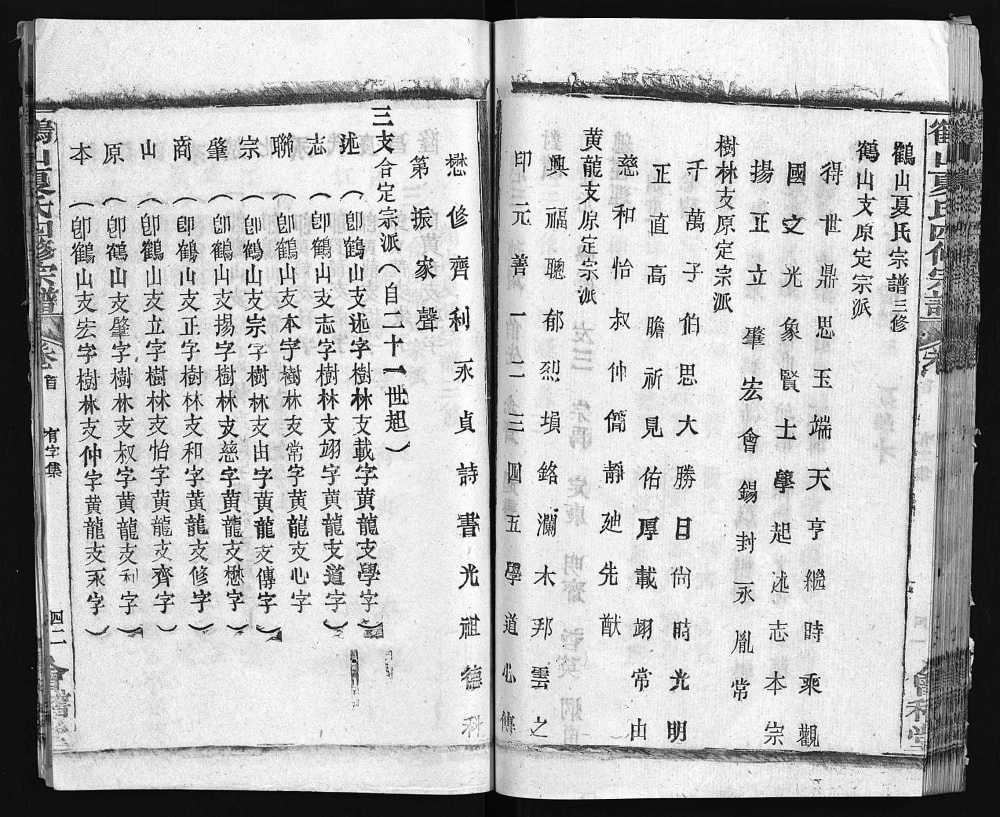 鶴山夏氏宗譜三修
鶴山支原定宗派
得世鼎思玉端天亨繼時乘觀
國文光象賢士學起述志本宗
揚正立肇宏會錫封永胤常
樹林支原定宗派
千萬子伯思大勝日尙時光明
正直高瞻祈見佑厚載翊常由
慈和怡叔仲簡靜廸先猷
黄龍支原定宗派
興福聰郁烈塤銘瀾木邦雲之
印元善一二三四五學道心傳
懋修齊利永貞詩書光祖德科
第振家聲
三支合定宗派（自二十一世起）
述（卽鶴山支述字樹林支載字黄龍支學字）
志（卽鶴山支志字樹林支翊字黄龍支道字）
聯（卽鶴山支本字樹林支常字黄龍支心字）
宗（卽鶴山支宗字樹林支由字黄龍支傳字）
肇（卽鶴山支揚字樹林支慈字黄龍支懋字）
商（卽鶴山支正字樹林支和字黄龍支修字）
山（卽鶴山支立字樹林支怡字黄龍支齊字）
原（卽鶴山支肇字樹林支叔字黄龍支利字）
本（卽鶴山支宏字樹林支仲字黄龍支永字）
鶴山夏氏四修宗譜
卷首
有字集
四二
會譜堂